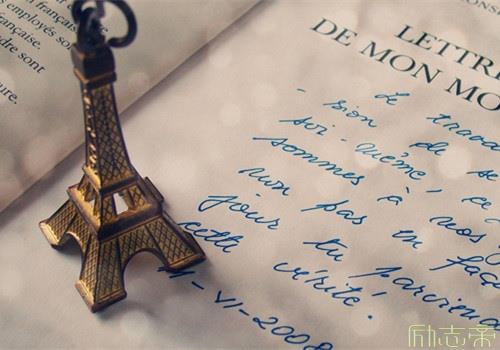 française
employés sont
française.
dre sont
ure.
LETTR
DE MON MO
Le trava
- sion de se
soi-même, ce
sommes à nos
non pas en faç
jour tu parvien
cette vérité.
11-VI-2008
励志帝